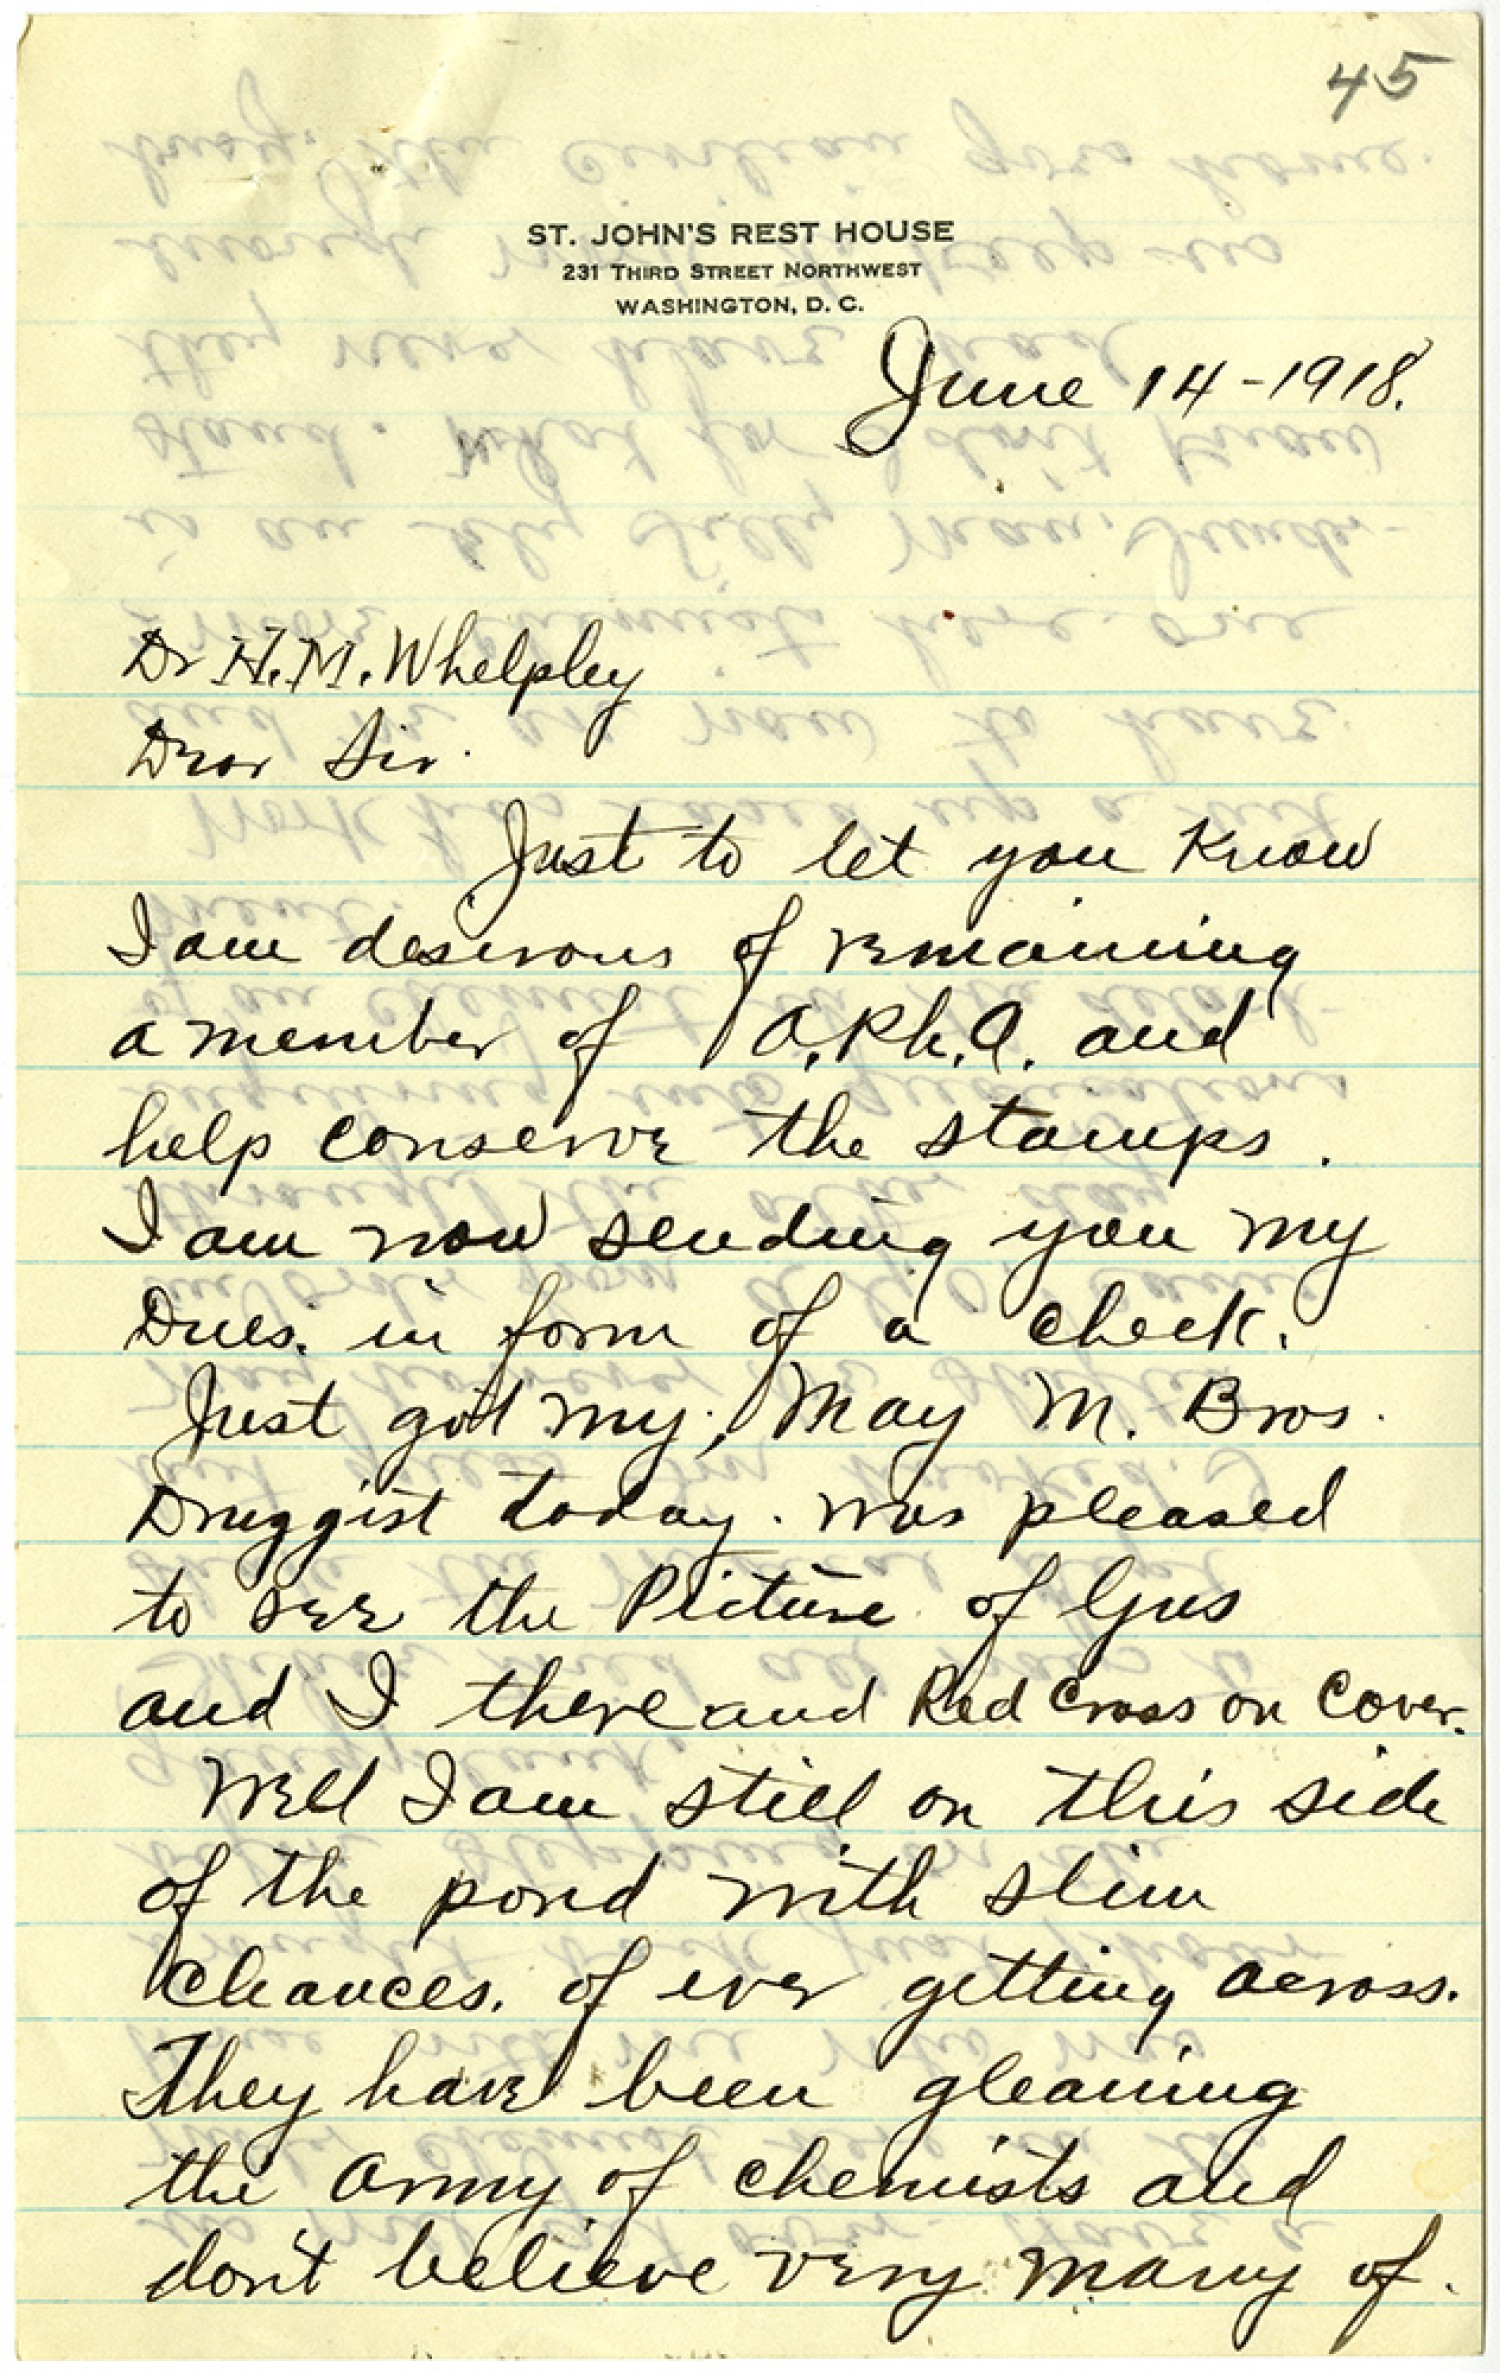 45
ST. JOHN'S REST HOUSE
231 THIRD STREET NORTHWEST
WASHINGTON, D. C.
June 14-1918.
Dr H.M. Whelpley
Dear Sir.
Just to let you know
I am desirous of remaining
a member of A.Ph.A. and
help conserve the stamps.
I am now sending you my
Dues. in form of a check.
Just got my, May M. Bros.
Druggist today. was pleased
to see the Picture of Gus
and I there and Red Cross on Cover.
Well I am still on this side
of the pond with slim
chances. of ever getting across.
They have been gleaning
the army of chemists and
don't believe very many of.